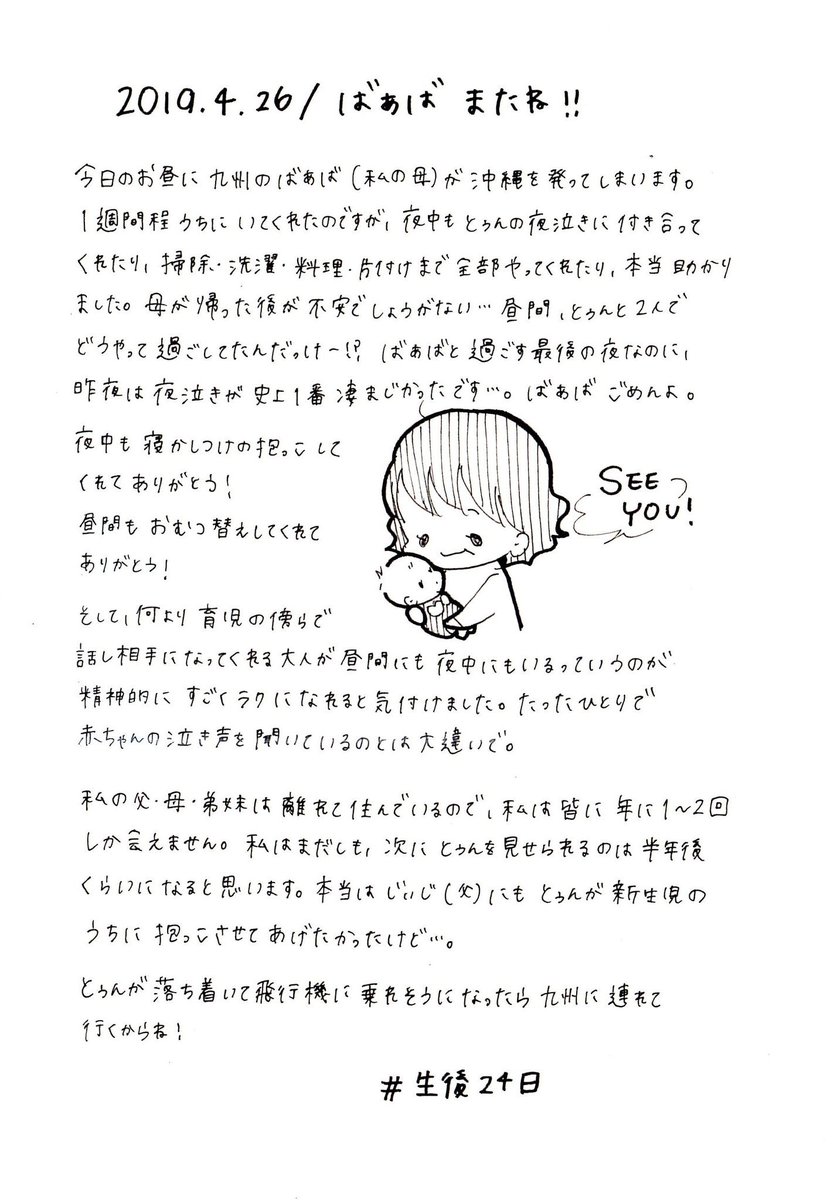 2019.4.26/ ばぁば またね!!
今日のお昼に 九州のばぁば(私の母)が 沖縄を発ってしまいます。
1週間程 うちに いてくれたのですが、夜中も とぅんの夜泣きに 付き合って
くれたり、掃除・洗濯・料理・片付けまで 全部 やってくれたり、本当 助かり
ました。母が帰った後が 不安でしょうがない… 昼間、とぅんと2人で
どうやって 過ごしてたんだっけー!? ばぁばと 過ごす最後の夜なのに、
昨夜は 夜泣きが 史上1番 凄まじかったです…。ばぁば ごめんよ。
夜中も 寝かしつけの抱っこして
くれて ありがとう!
昼間も おむつ替えしてくれて
ありがとう!
SEE
YOU!
そして、何より 育児の傍らで
話し相手になってくれる大人が 昼間にも 夜中にもいるっていうのが
精神的に すごくラクになれると気付けました。たったひとりで
赤ちゃんの泣き声を聞いているのとは大違いで。
私の父・母・弟妹は 離れて住んでいるので、私は皆に 年に1～2回
しか会えません。私はまだしも、次に とぅんを見せられるのは 半年後
くらいになると思います。本当は じぃじ(父)にも とぅんが 新生児の
うちに 抱っこさせてあげたかったけど…。
とぅんが 落ち着いて飛行機に 乗れそうになったら 九州に 連れて
行くからね!
#生後24日